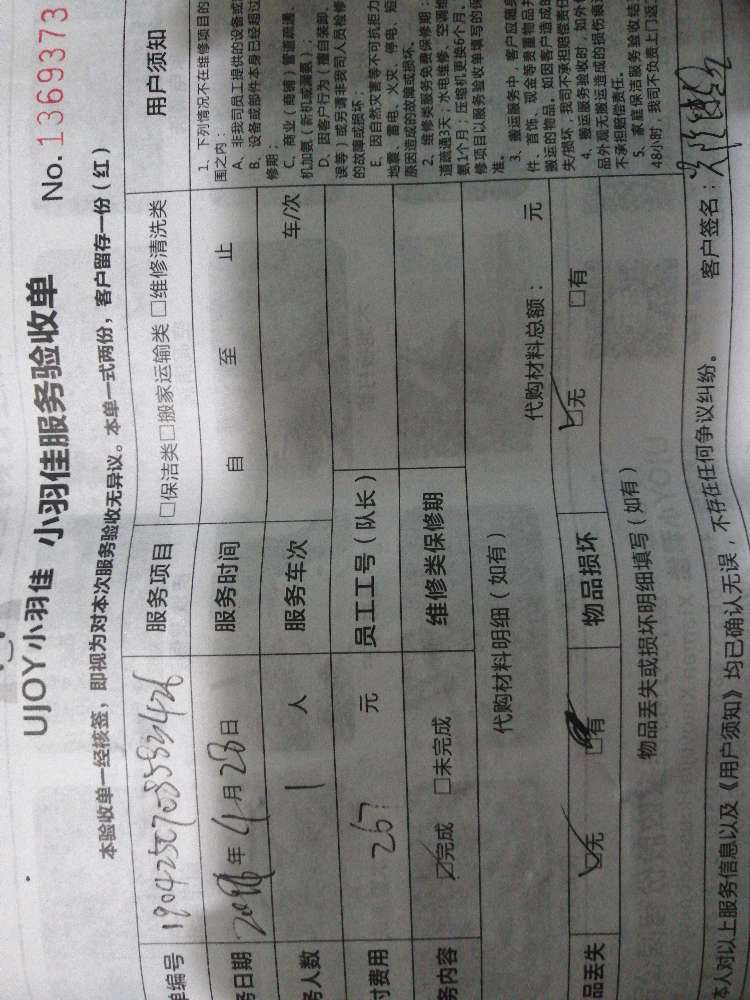 UJOY小羽佳 小羽佳服务验收单
No. 1369373
本验收单一经核签，即视为对本次服务验收无异议。本单一式两份，客户留存一份（红）
单编号
服务项目 □保洁类□搬家运输类 □维修清洗类
务日期 年4月28日 服务时间 自 至 止
务人数 1 人 服务车次 车/次
付费用 267 元 员工工号（队长）
务内容 ☑完成 □未完成 维修类保修期
代购材料明细（如有） 代购材料总额： 元
品丢失 ☑无 □有 物品损坏 ☑无 □有
物品丢失或损坏明细填写（如有）
用户须知
1、下列情况不在维修项目的
围之内：
A、非我司员工提供的设备或
B、设备或部件本身已经超过
修期；
C、商业（商铺）管道疏通、
机加氨（新机或漏氨）；
D、因客户行为（擅自装卸
误等）或另请非我司人员检修
的故障或损坏；
E、因自然灾害等不可抗拒力
地震、雷电、火灾、停电、短
原因造成的故障或损坏。
2、维修类服务免费保修期：
道疏通3天；水电维修、空调维
氨1个月；压缩机更换6个月。
修项目以服务验收单填写的保
准。
3、搬运服务中，客户应随身
件、首饰、现金等贵重物品并
搬运的物品。如因客户造成的
失/损坏，我司不承担赔偿责任
4、搬运服务验收时，如外包
品外观无搬运造成的损伤痕
不承担赔偿责任。
5、家庭保洁服务验收结
48小时，我司不负责上门返
本人对以上服务信息以及《用户须知》均已确认无误，不存在任何争议纠纷。 客户签名：